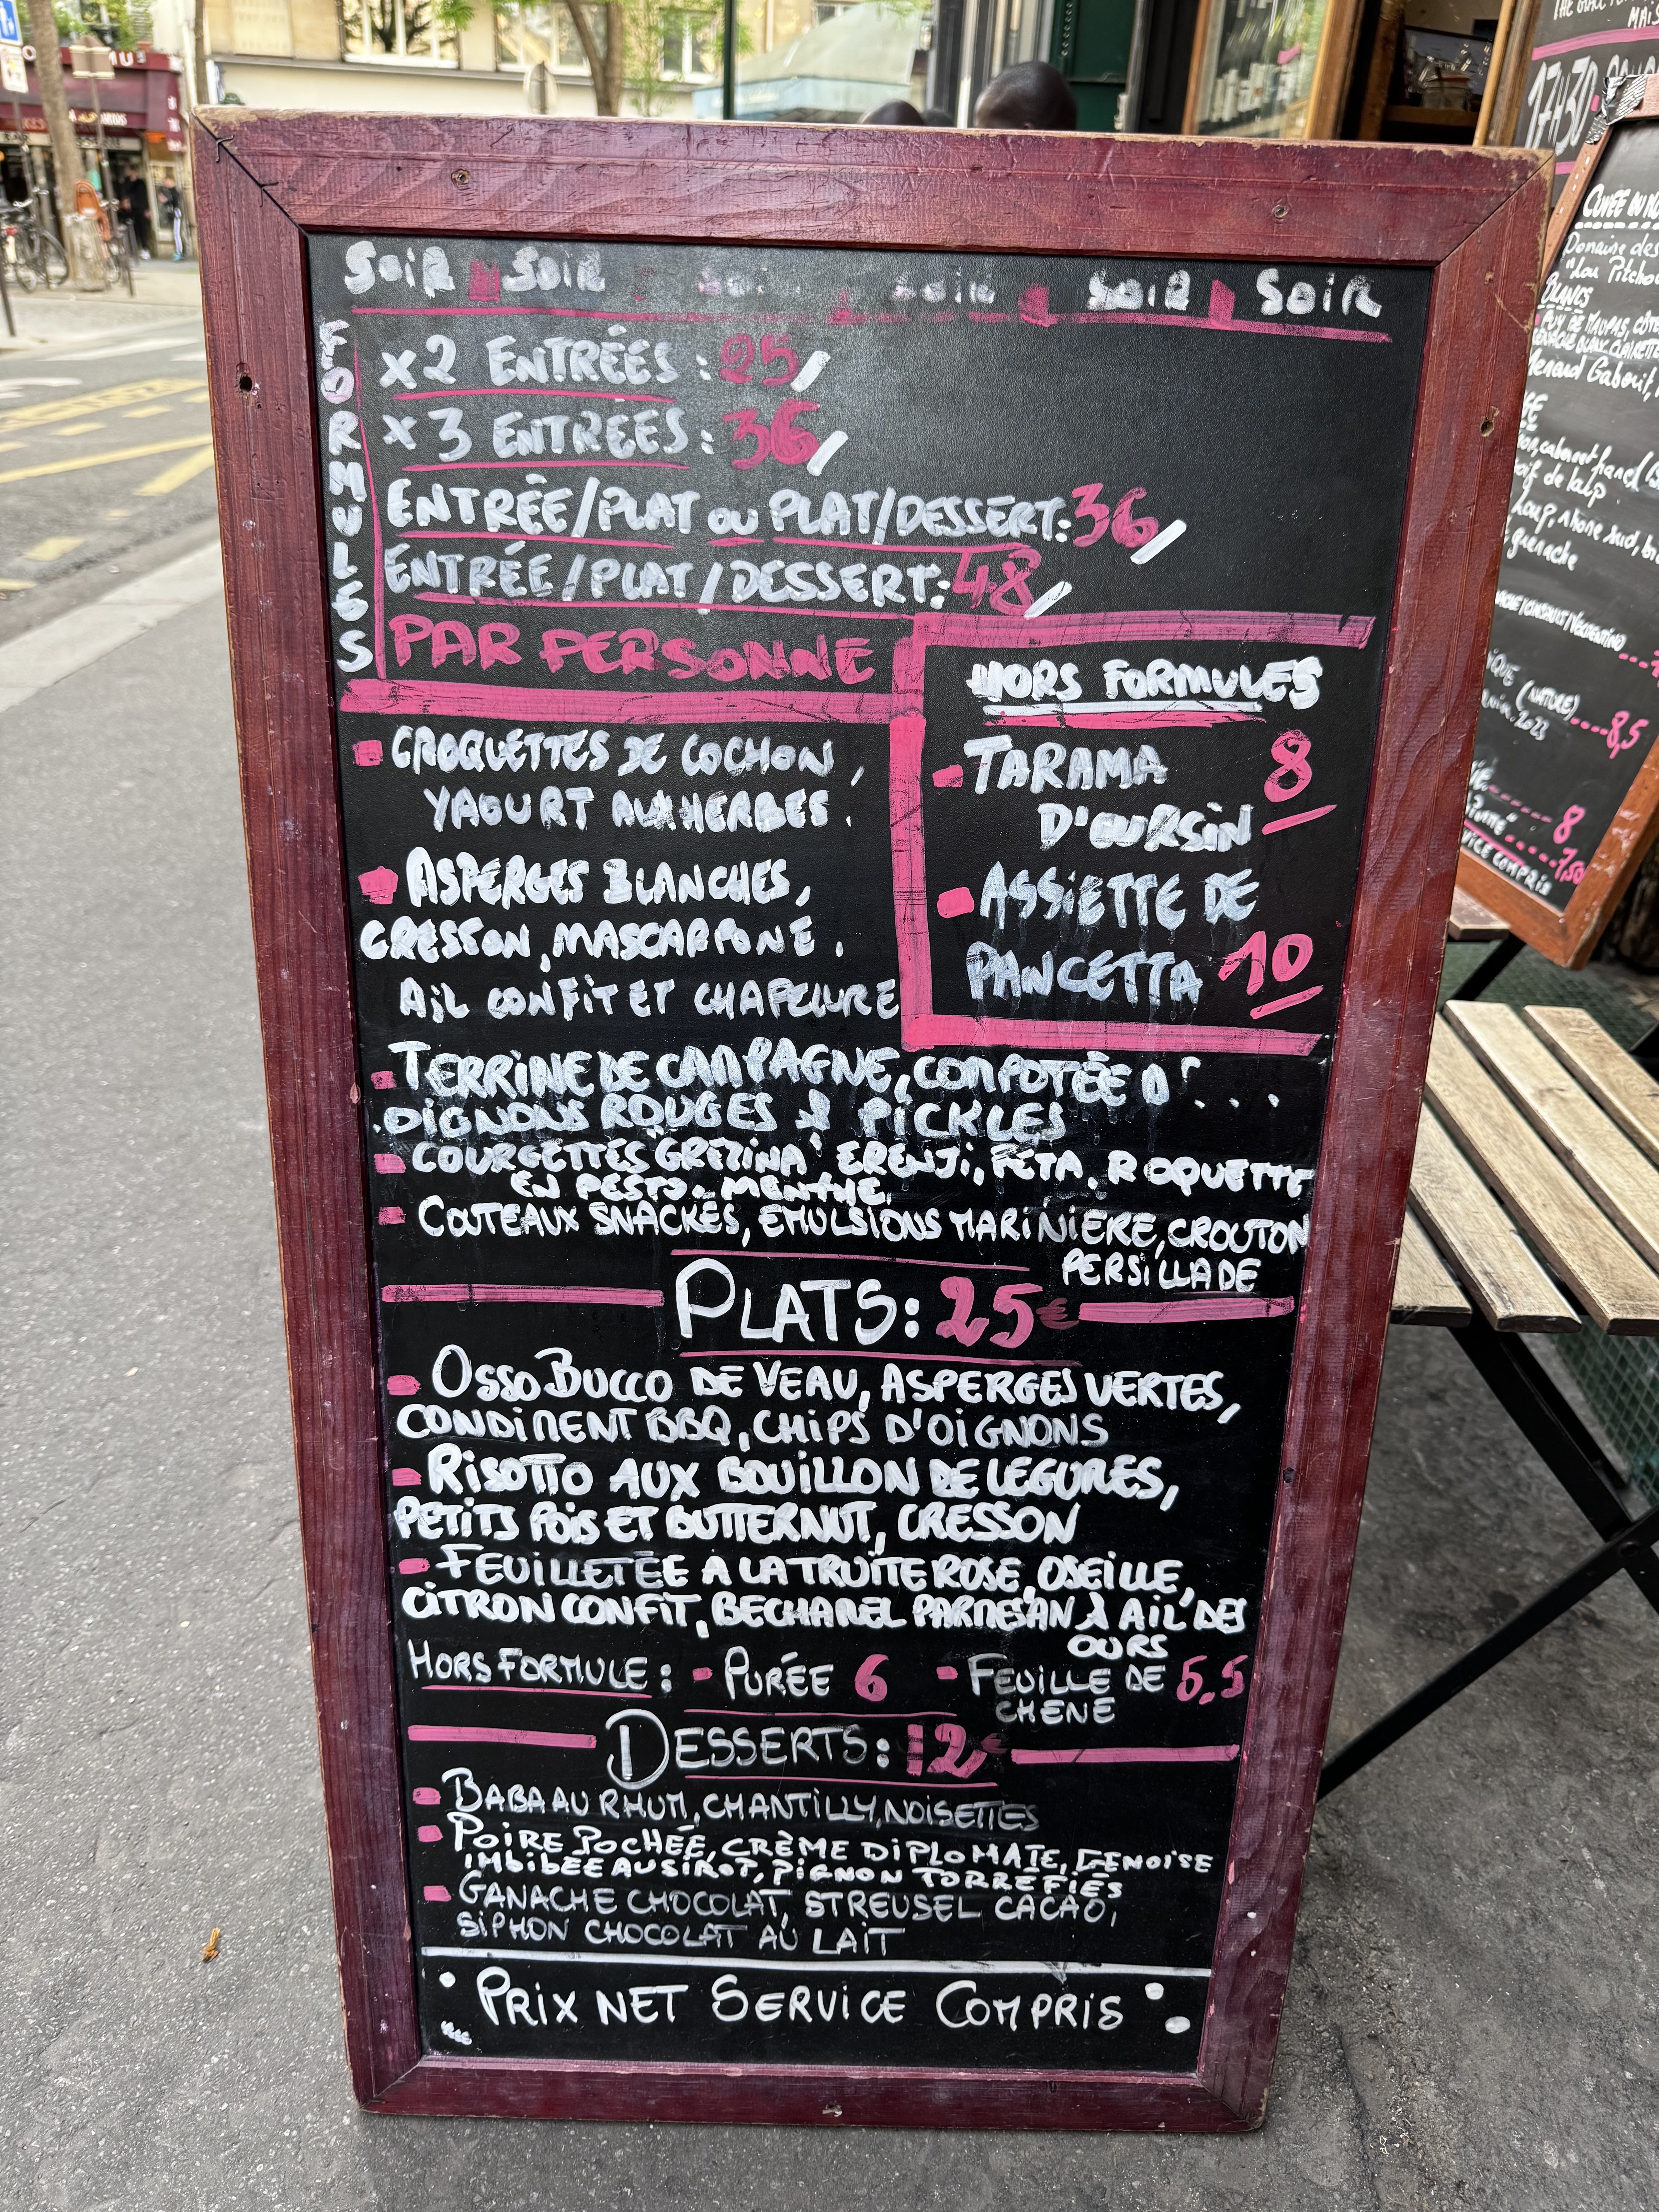 SOIR SOIR SOIR SOIR SOIR SOIR
FORMULES
x2 ENTRÉES : 25/
x3 ENTREES : 36/
ENTRÉE/PLAT OU PLAT/DESSERT: 36/
ENTRÉE/PLAT/DESSERT: 48/
PAR PERSONNE
HORS FORMULES
TARAMA 8
D'OURSIN
ASSIETTE DE
PANCETTA 10
CROQUETTES DE COCHON,
YAOURT AUX HERBES.
ASPERGES BLANCHES,
CRESSON, MASCARPONE.
AIL CONFIT ET CHAPELURE
TERRINE DE CAMPAGNE, COMPOTÉE D'...
OIGNONS ROUGES & PICKLES
COURGETTES GREZINA ERENJI, FETA, ROQUETTE
EN PESTO. MENTHE.
COUTEAUX SNACKÉS, EMULSIONS MARINIERE, CROUTON
PERSILLADE
PLATS: 25€
OSSO BUCCO DE VEAU, ASPERGES VERTES,
CONDIMENT BBQ, CHIPS D'OIGNONS
RISOTTO AUX BOUILLON DE LEGUMES,
PETITS POIS ET BUTTERNUT, CRESSON
FEUILLETÉE A LA TRUITE ROSE, OSEILLE,
CITRON CONFIT, BECHAMEL PARMESAN & AIL DES
OURS
HORS FORMULE: - PURÉE 6 - FEUILLE DE 5.5
CHENE
DESSERTS: 12€
BABA AU RHUM, CHANTILLY, NOISETTES
POIRE POCHÉE, CRÈME DIPLOMATE, GENOISE
IMBIBÉE AU SIROP, PIGNON TORRÉFIÉS
GANACHE CHOCOLAT, STREUSEL CACAO,
SIPHON CHOCOLAT AU LAIT
PRIX NET SERVICE COMPRIS
17H30
Domaine des
"Lou Pitchou
BLANCS
(NATURE)....8,5
8
7,50